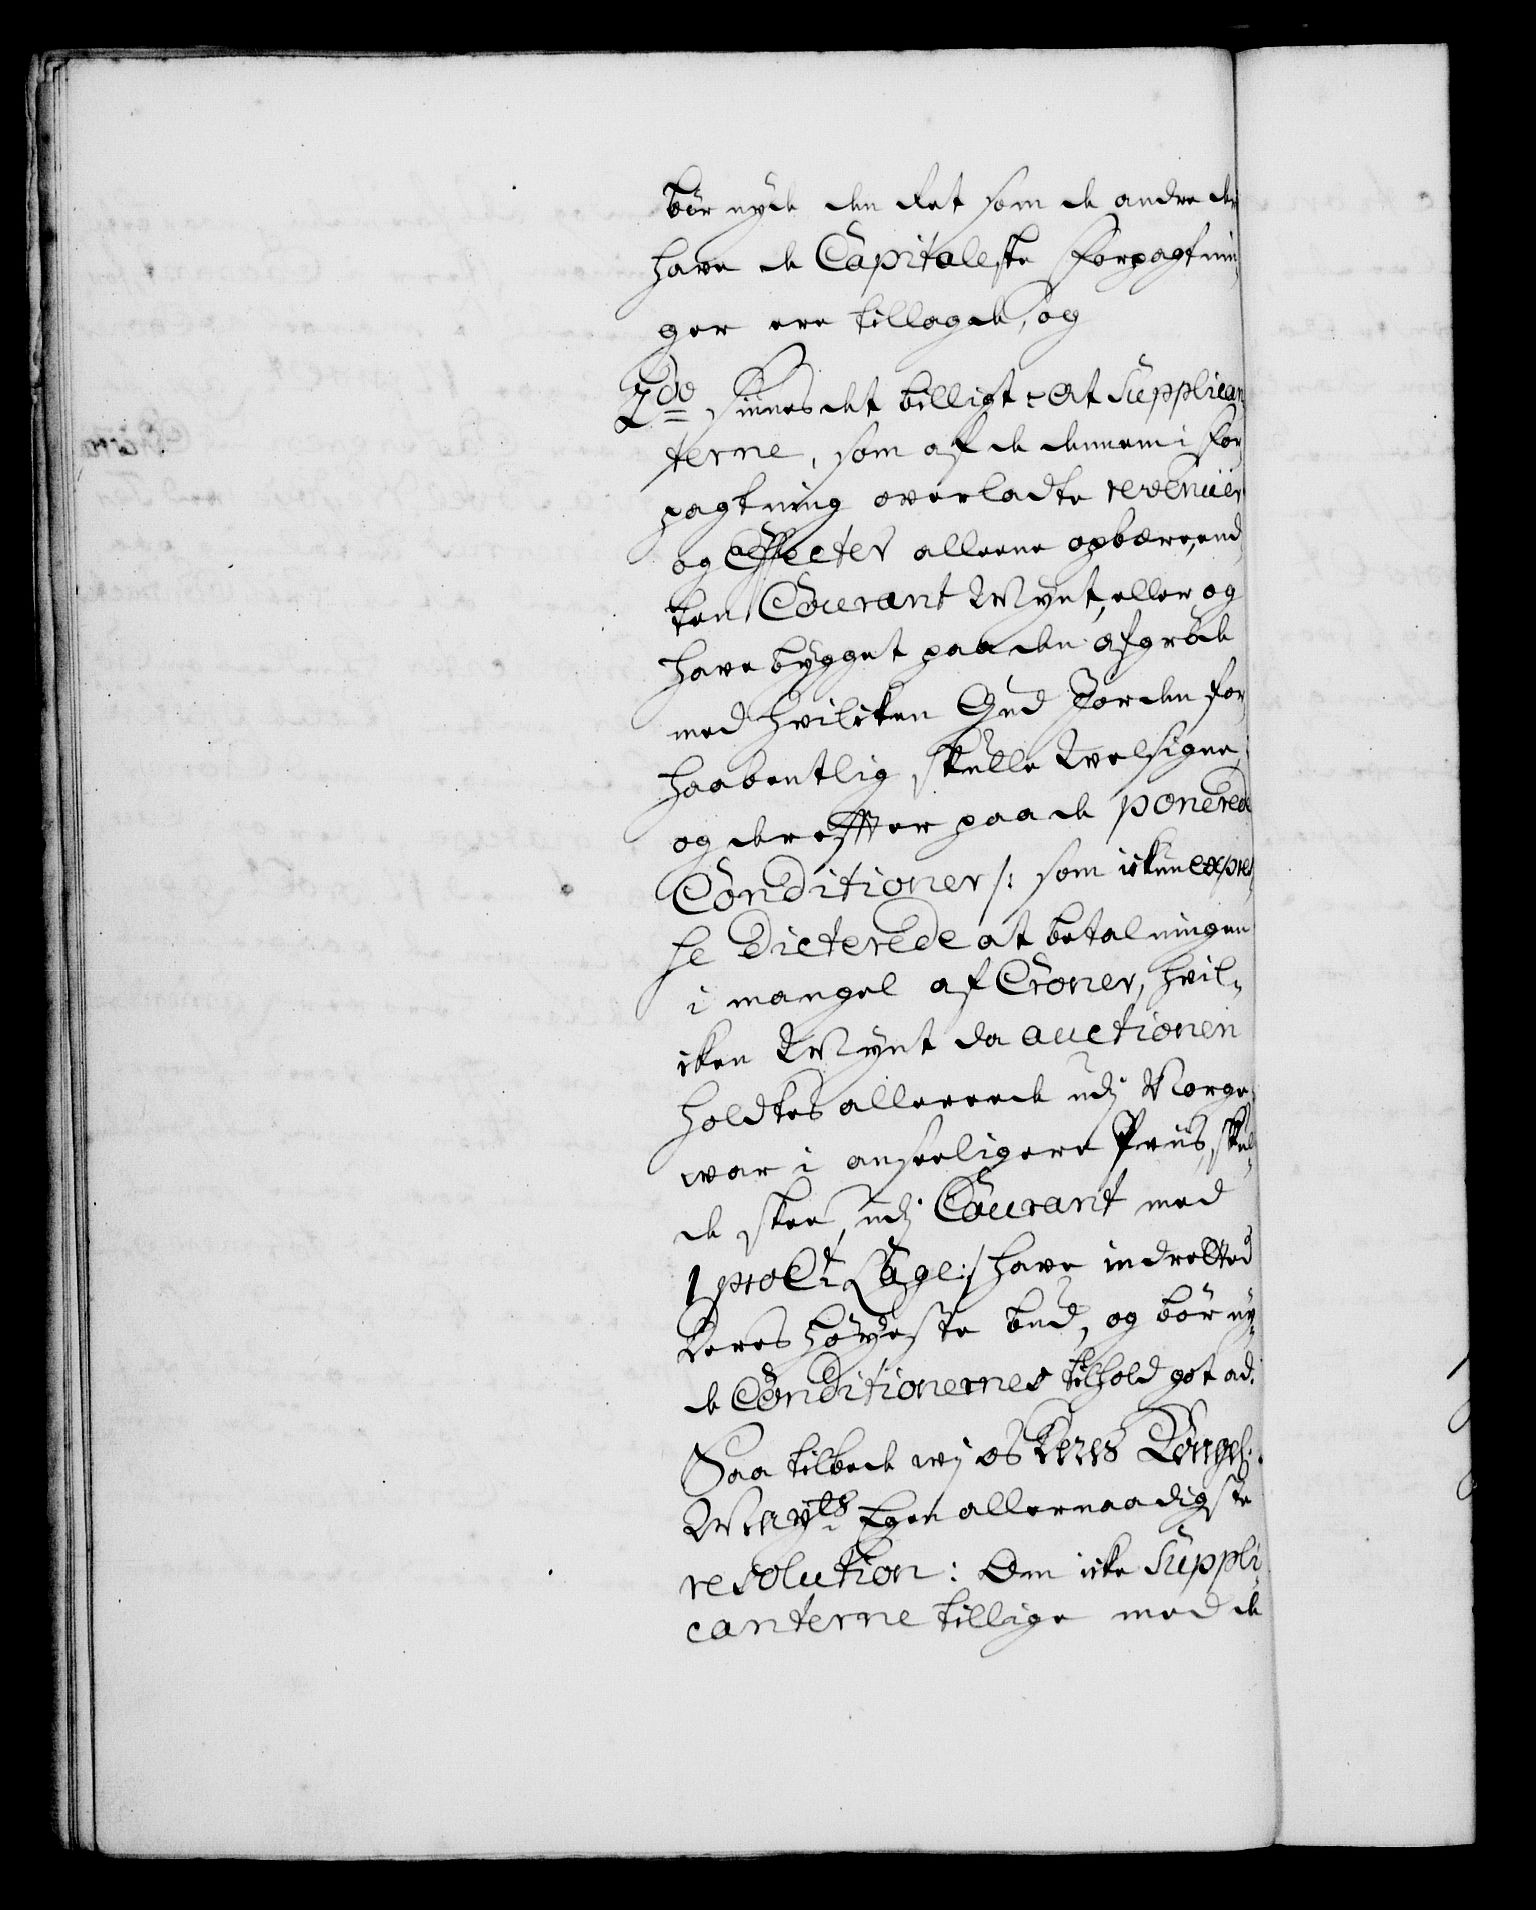 bør nyde den Ret som de andre der
have de Capitaleste Forpagtnin,
ger ere tillagde, og
2do Siunes det billigt at Supplican
terne, som af de dennem i For
pagtning overladte revenuer
og Effecter alleene opbære, end,
ten Courant Mynt, eller og
have bygget paa den afgrøde
med hvilcken Gud Jorden for
haabentlig skulle Welsigne,
og derefter paa de ponerede
Conditioner /: som icke expres,
se Dicterede at betalningen
i mangel af Croner, hvil,
cken Mynt da auctionen
holdtes allereede udj Norge,
war i anseeligere Priis, skul,
de skee, udj Courant med
1 proCt Lage :/ have indretted
Deres høyeste bud, og bør ny,
de Conditionernes tilhold got ad.
Saa tilbede wj os Deres Kongel:
Mayts Egen allernaadigste
resolution: Om icke Suppli
canterne tillige med de